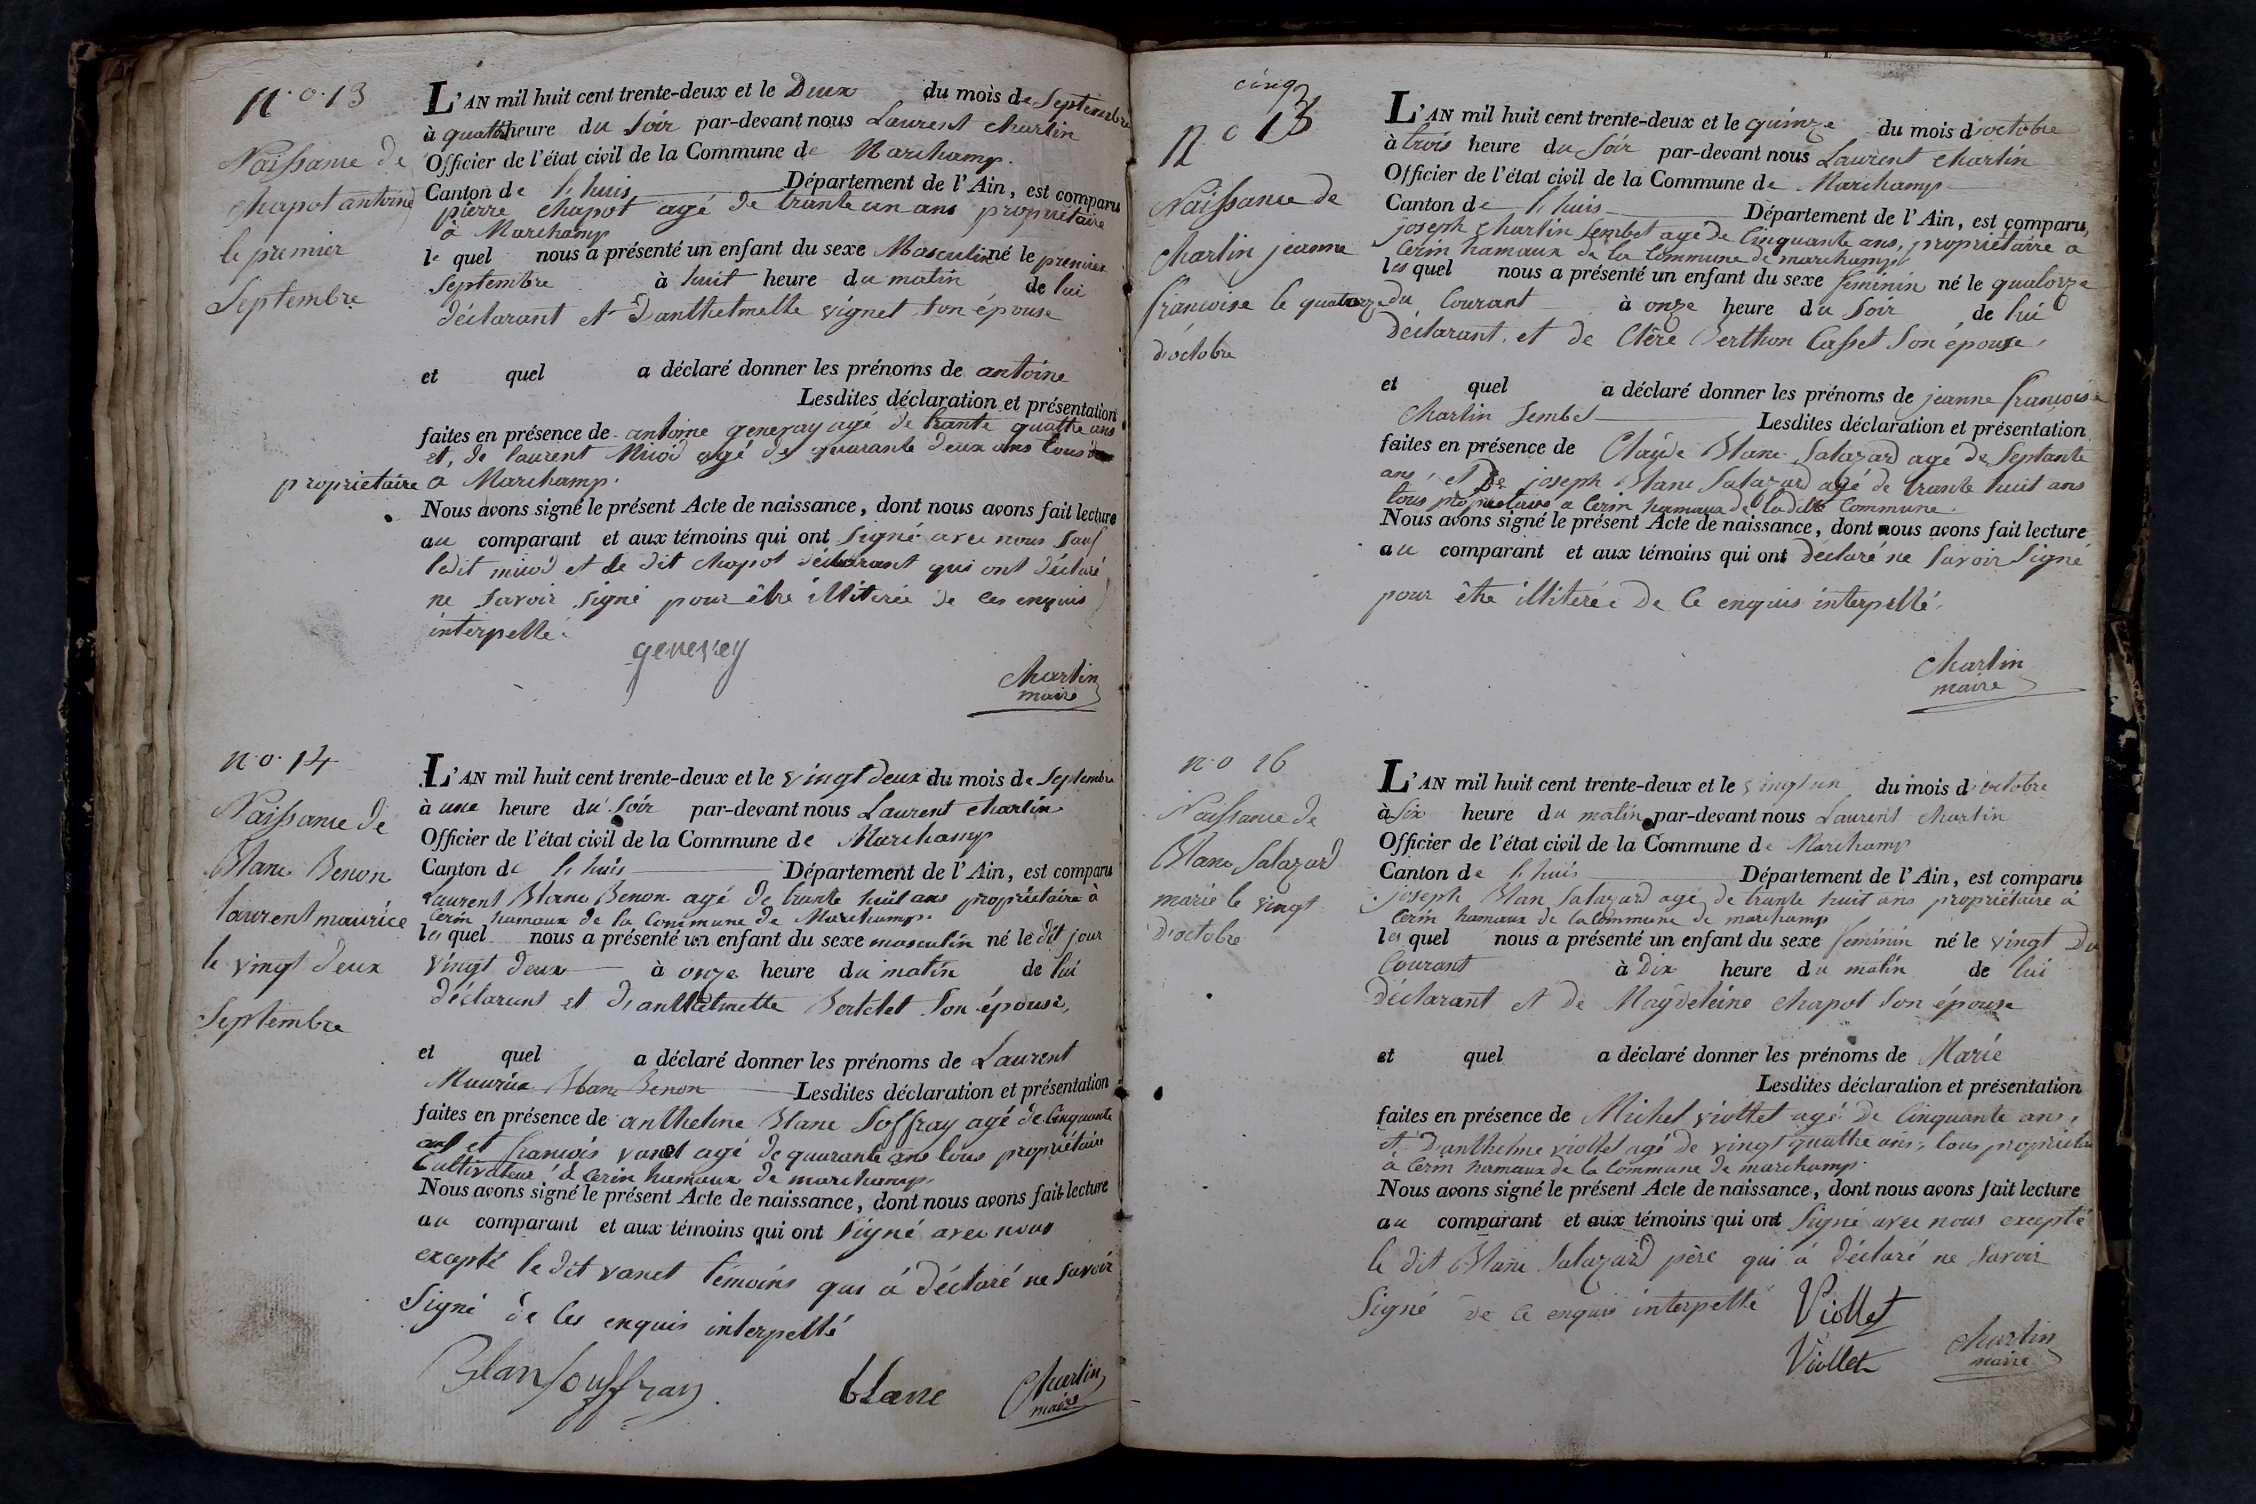 n.o.13
Naissance de
Chapot antoine
le premier
Septembre
L'AN mil huit cent trente-deux et le Deux du mois de Septembre
à quatre heure du Soir par-devant nous Laurent Charlin
Officier de l'état civil de la Commune de Marchamp.
Canton de l'huis Département de l'Ain, est comparu
pierre Chapot agé de trante un ans propriétaire
à Marchamp
le quel nous a présenté un enfant du sexe Masculin né le premier
Septembre à huit heure du matin de lui
déclarant et d'anthelmette vignet son épouse
et quel a déclaré donner les prénoms de antoine
Lesdites déclaration et présentation
faites en présence de antoine genevay agé de trante quattre ans
et, de laurent Miod agé de quarante deux ans tous
propriétaire a Marchamp.
Nous avons signé le présent Acte de naissance, dont nous avons fait lecture
au comparant et aux témoins qui ont signé avec nous sauf
ledit miod et le dit Chapot déclarant qui ont déclaré
ne savoir signé pour être illiterée de ces enquis
interpellé.
genevey
Charlin
maire
n.o.14
Naissance de
Blanc Benon
laurent maurice
le vingt deux
Septembre
L'AN mil huit cent trente-deux et le vingt deux du mois de Septembre
à une heure du Soir par-devant nous Laurent Charlin
Officier de l'état civil de la Commune de Marchamp
Canton de l'huis Département de l'Ain, est comparu
Laurent Blanc Benon agé de trante huit ans propriétaire à
Cerin hamaux de la Commune de Marchamp.
les quel nous a présenté un enfant du sexe masculin né le dit jour
vingt deux à onze heure du matin de lui
déclarant et d'anthelmette Bertelet son épouse,
et quel a déclaré donner les prénoms de Laurent
Maurice Blanc Benon Lesdites déclaration et présentation
faites en présence de anthelme Blanc Soffray agé de Cinquante
ans et francois vanet agé de quarante ans tous propriétaire
Cultivateur à Cerin hamaux de marchamp.
Nous avons signé le présent Acte de naissance, dont nous avons fait lecture
au comparant et aux témoins qui ont signé avec nous
excepté le dit vanet témoins qui à déclaré ne savoir
signé de ces enquis interpellé
Blan Souffray
blanc
Charlin
maire
cinq
n o 13
Naissance de
Charlin jeanne
francoise le quatorze
d'octobre
L'AN mil huit cent trente-deux et le quinze du mois d'octobre
à trois heure du soir par-devant nous Laurent Charlin
Officier de l'état civil de la Commune de Marchamp
Canton de l'huis Département de l'Ain, est comparu,
joseph Charlin Sembet agé de Cinquante ans, propriétaire a
Cerin hamaux de la Commune de marchamp
les quel nous a présenté un enfant du sexe feminin né le quatorze
du Courant à onze heure du soir de lui
déclarant. et de Clère Berthon Casset son épouse,
et quel a déclaré donner les prénoms de jeanne francoise
Charlin Sembet Lesdites déclaration et présentation
faites en présence de Claude Blanc Salazard agé de Septante
ans, et De joseph Blanc Salazard agé de trante huit ans
tous propriétaires a Cerin hamaux de la dite Commune.
Nous avons signé le présent Acte de naissance, dont nous avons fait lecture
au comparant et aux témoins qui ont déclaré ne savoir signé
pour être illiterée de Ce enquis interpellé.
Charlin
maire
n.o 16
Naissance de
Blanc Salazard
marie le vingt
D'octobre
L'AN mil huit cent trente-deux et le vingt un du mois d'octobre
à Six heure du matin par-devant nous Laurent Charlin
Officier de l'état civil de la Commune de Marchamp
Canton de l'huis Département de l'Ain, est comparu
joseph Blan Salazard agé de trante huit ans propriétaire à
Cerin hamaux de la Commune de marchamp
les quel nous a présenté un enfant du sexe feminin né le vingt Du
Courant à Dix heure du matin de lui
déclarant et de Magdeleine Chapot son épouse
et quel a déclaré donner les prénoms de Marie
Lesdites déclaration et présentation
faites en présence de Michel viollet agé de Cinquante ans,
et D'anthelme viollet agé de vingt quattre ans, tous propriétai
à Cerin hamaux de la Commune de marchamp.
Nous avons signé le présent Acte de naissance, dont nous avons fait lecture
au comparant et aux témoins qui ont signé avec nous excepté
le dit Blanc Salazard père qui à déclaré ne savoir
signé de ce enquis interpellé
Viollet
Viollet
Charlin
maire